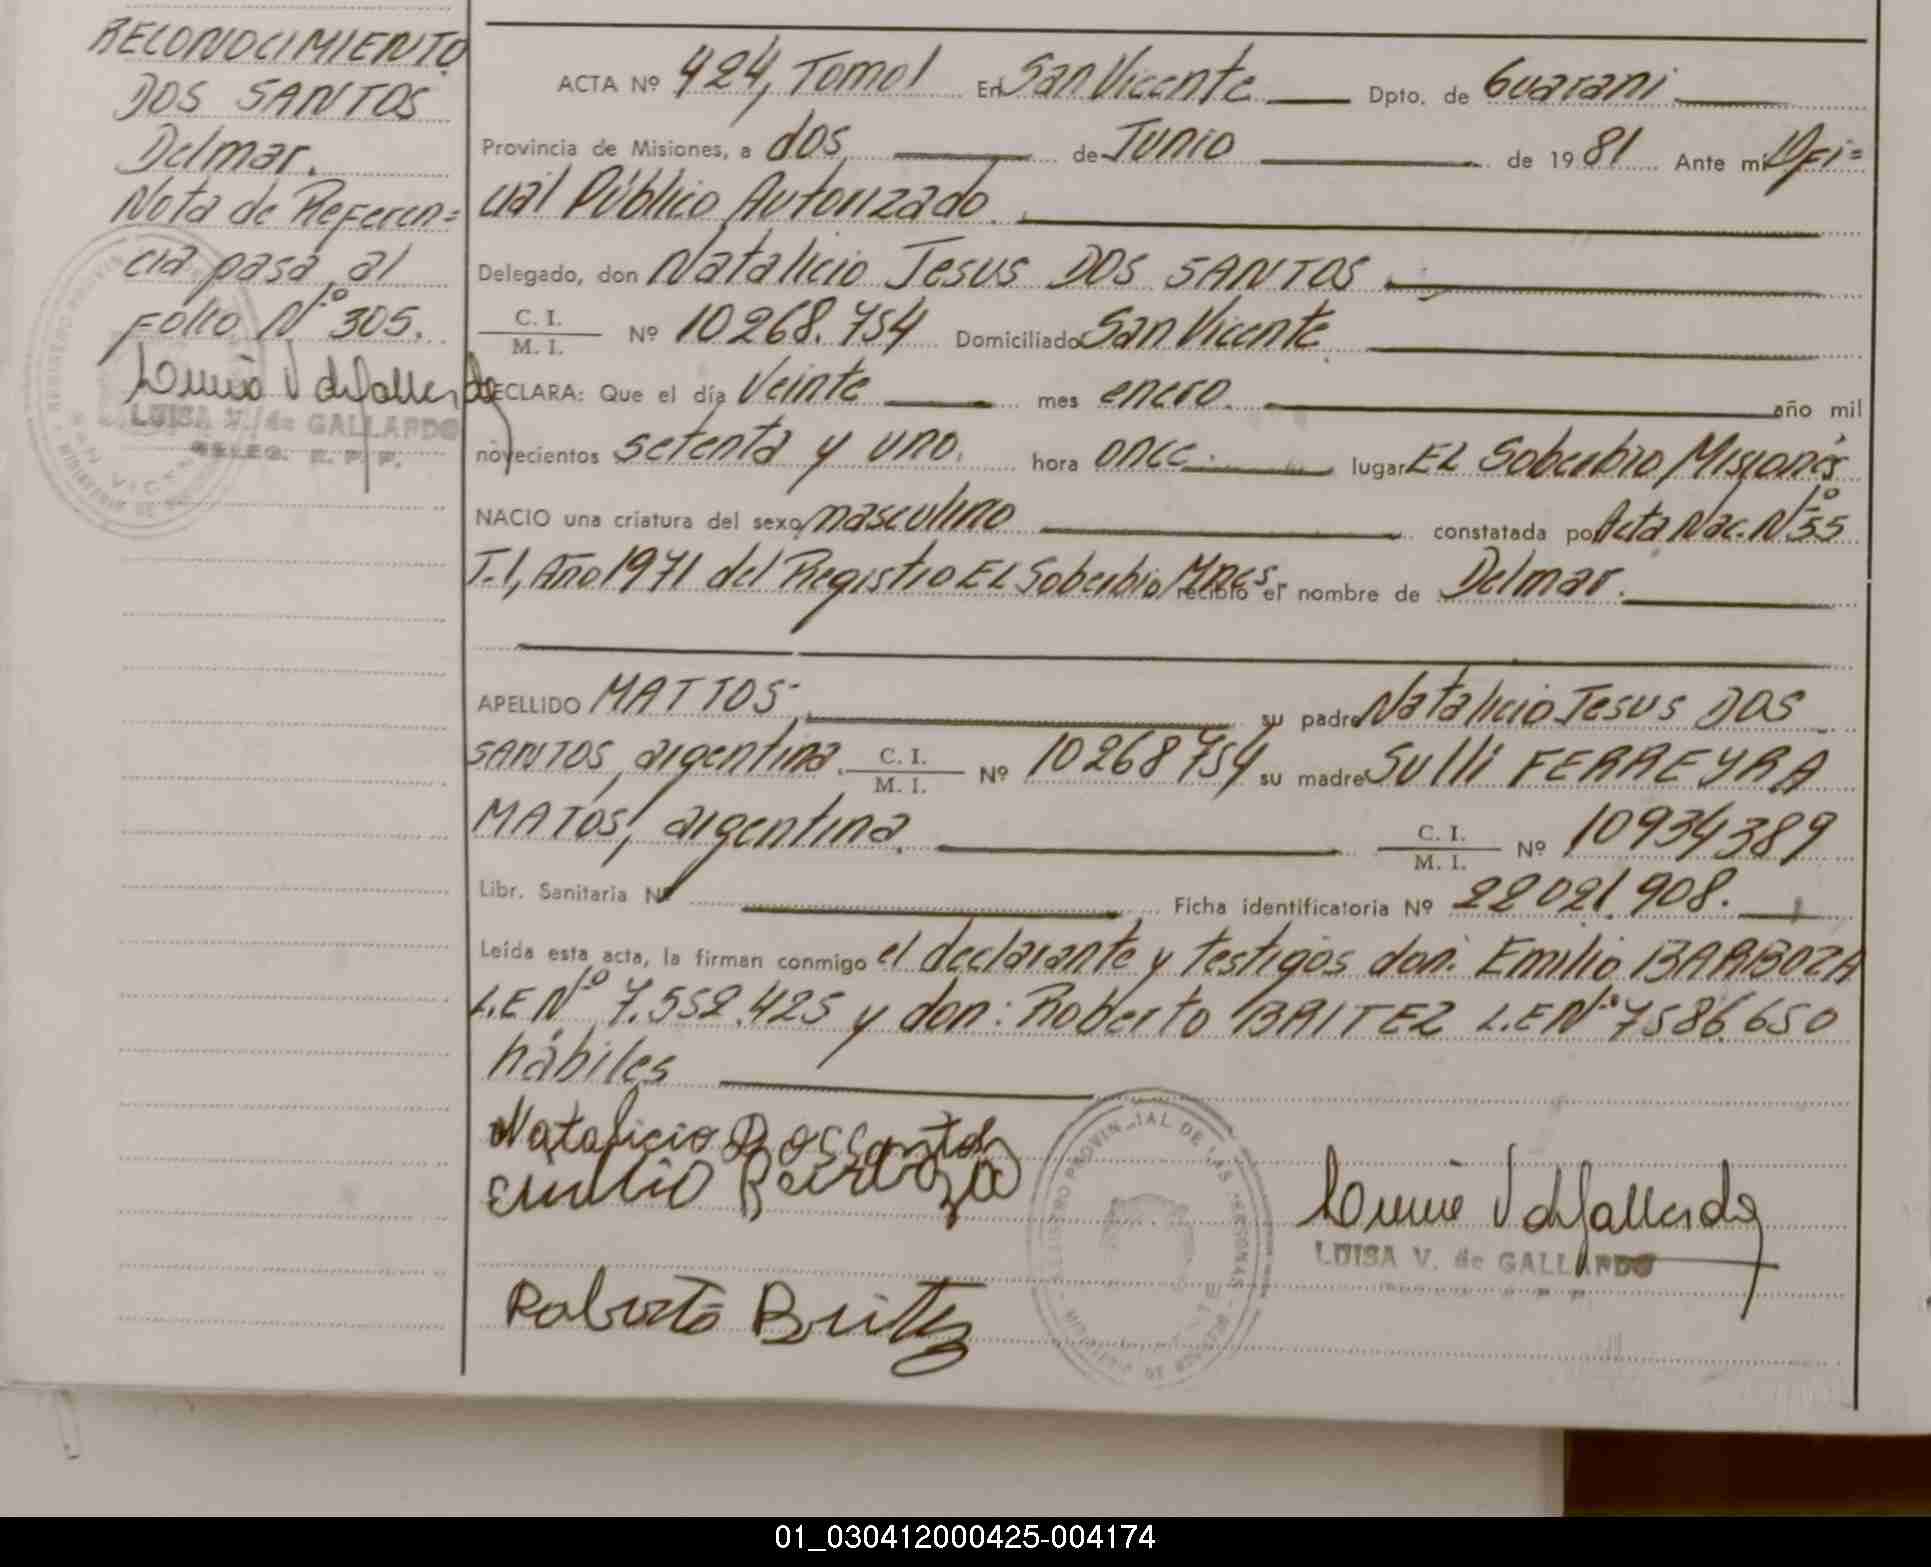 RECONOCIMIENTO
DOS SANTOS
Delmar.
Nota de Referen=
cia pasa al
Folio N° 305.
LUISA V. de GALLARDO
DELEG. R. P. P.
ACTA Nº 424, Tomo 1 En San Vicente Dpto. de Guarani
Provincia de Misiones, a dos de Junio de 1981 Ante mi Ofi=
cial Público Autorizado.
Delegado, don Natalicio Jesus DOS SANTOS
C. I. / M. I. Nº 10268.754 Domiciliado San Vicente
DECLARA: Que el día Veinte mes enero. año mil
novecientos setenta y uno. hora once lugar EL Soberbio, Misiones
NACIO una criatura del sexo masculino constatada po Acta Nac. N° 55
T.1, Año 1971 del Registro EL Soberbio, Mnes. recibió el nombre de Delmar.
APELLIDO MATTOS su padre Natalicio Jesus DOS
SANTOS, argentina. C. I. / M. I. Nº 10268754 su madre Sulli FERREYRA
MATOS, argentina, C. I. / M. I. Nº 10934389
Libr. Sanitaria Nº Ficha identificatoria Nº 22021.908.
Leída esta acta, la firman conmigo el declarante y testigos don: Emilio BARBOZA
L.E N° 7.552.425 y don: Roberto BRITEZ L.E N° 7586.650
hábiles
Natalicio Dos Santos
Emilio Barboza
Roberto Britez
REGISTRO PROVINCIAL DE LAS PERSONAS
LUISA V. de GALLARDO
01_030412000425-004174